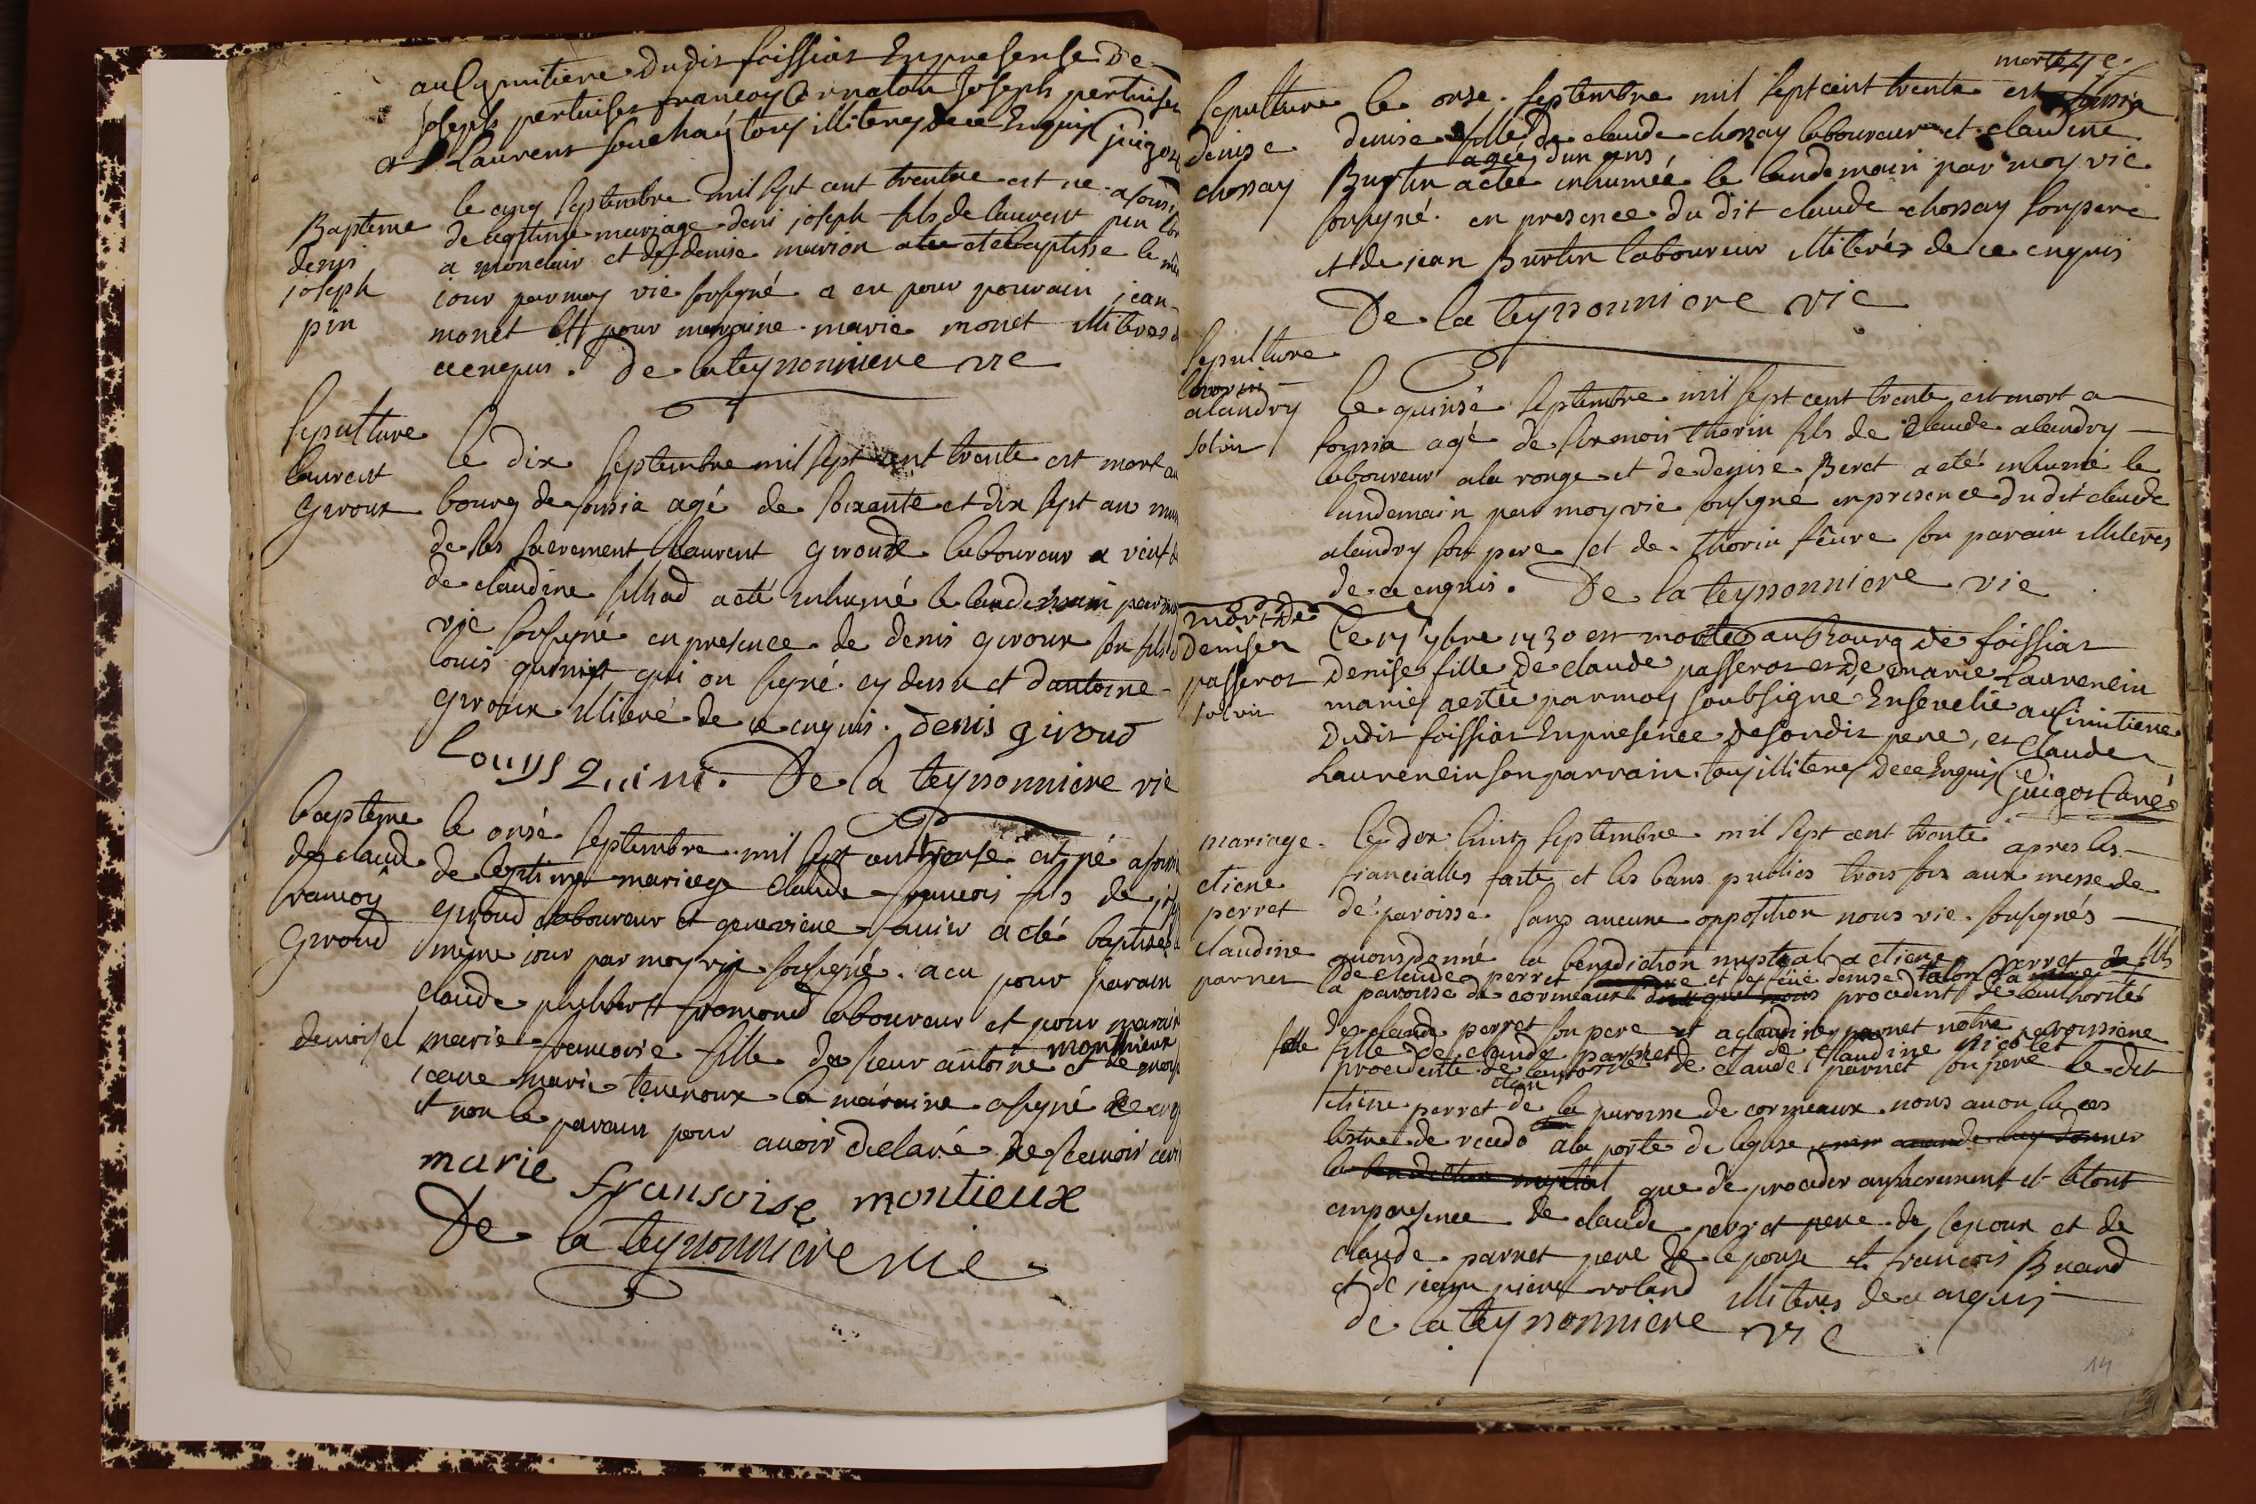 au Cymitiere dudit foissiat En presense De
Joseph pertuiset francoy Joseph pertuiset
et Laurent souchay tous illiteres de ce Enquis Guigot
Bapteme
denis
joseph
pin
le cinq septembre mil sept cent trentre est ne a
de legitime mariage deni joseph fils de laurent pin
a monclair et de denise marion a ete baptisse le
jour par moy vic sousigné a eu pour parrain jean
monet et pour maraine marie monet illiteres
ce enquis. De la teyssonniere vic
sepulture
laurent
giroux
le dix septembre mil sept cent trente est mort au
bourg de foissia agé de soixante et dix sept ans
de ses sacrement laurent giroux laboureur
de claudine a eté inhumé le landemain par moy
vic sousigné en presence de denis giroux son fils
louis qui on signé cy dessu et dantoine
giroux illiteré de ce enquis. denis giroud
Louys Quini. De la teyssonniere vic
bapteme
de claude
francoy
Giroud
le onsé septembre mil sept cent trense est né a
de legitime mariage Claude francois fils de
giroud laboureur et genevieve a eté baptisé
même jour par moy vic sousigné. a eu pour parain
claude philibert fromond laboureur et pour maraine
demoisel marie francoise fille du sieur antoine montieux et de
jeane marie tenenoux la maraine a signé de
et non le parain pour avoir declaré ne scavoir
marie fransoise montieux
De la teyssonniere vic
morte
sepulture
denise
chossay
le onse septembre mil sept cent trente est
denise fille de claude chossay laboureur et claudine
agée dun ans
Burtin a etee inhumée le landemain par moy vic
sousigné en presence du dit claude chossay son pere
et de jean Burtin laboureur illiterés de ce enquis
De la teyssonniere vic
sepulture
alandry
solvit
le quinsé septembre mil sept cent trente est mort a
foissia agé de six mois thorin fils de claude alandry
laboureur a la ronge et de denise Beret a eté inhumé le
landemain par moy vic sousigné en presence du dit claude
alandry son pere et de thorin son parain illiteres
de ce enquis. De la teyssonniere vic
mort de
Denise
passerot
solvit
Le 17 7bre 1730 est morte au Bourg de foissiat
Denise fille de claude passerot et de marie Laurencin
mariés a estée par moy soubsigné Ensevelie au Cimitiere
Dudit foissiat En presence de son dit pere, et Claude
Laurencin son parrain tous illiteres De ce Enquis Guigot Curé
mariage
etiene
perret
claudine
parnet
le dix huit septembre mil sept cent trente apres les
fiancialles faite et les bans publies trois fois aux messe de
de paroisse sans aucune opposition nous vic sousignés
avons donné la benediction nuptial a etiene perret fils
de claude perret et de feüe denise talon de
la paroisse de cormeaux procedent de lauthorité
de claude perret son pere et a claudine parnet notre paroissiene
fille de claude parnet et de claudine nicolet
procedente de lautorité de claude parnet son pere le dit
etiene perret de la paroisse de cormeaux nous avon lu ces
lettre de recedo a la porte de leglise
que de proceder au sacrement et le tout
en presence de claude perret pere de lepoux et de
claude parnet pere de lepouse et francois Buard
et de jean piere roland illiteres de ce enquis
De la teyssonniere vic
14